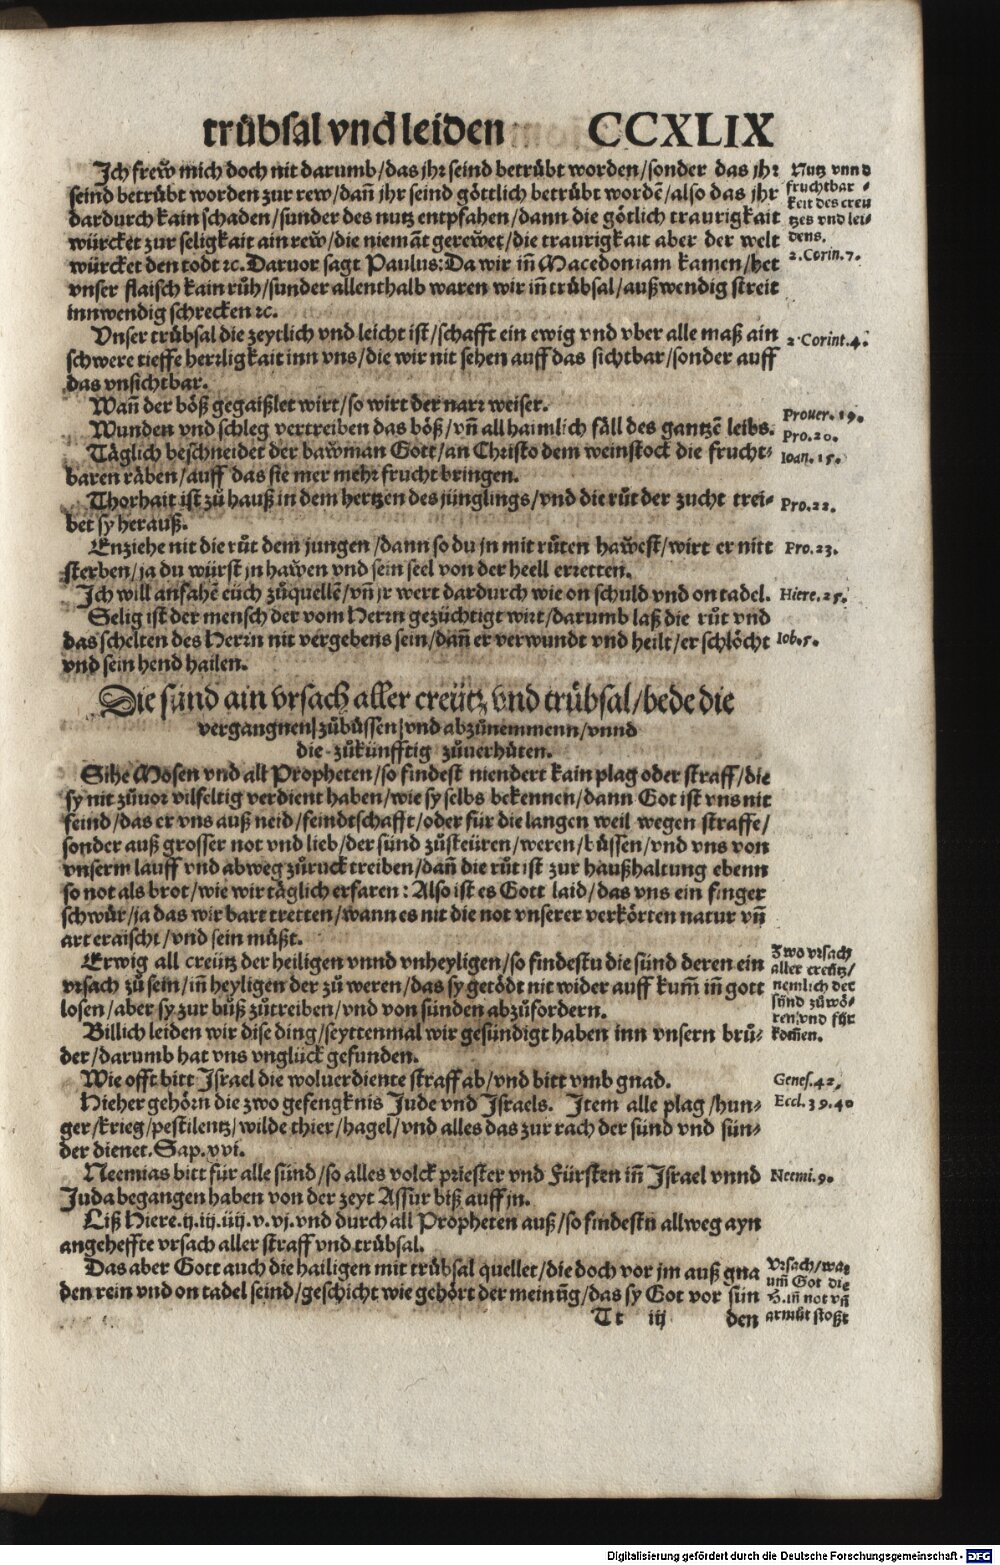 trübsal vnd leiden CCXLIX
Ich frew̃ mich doch nit darumb/das jhr seind betrübt worden/sonder das jhr
seind betrübt worden zur rew/dañ jhr seind göttlich betrübt wordẽ/also das jhr
dardurch kain schaden/sunder des nutz entpfahen/dann die götlich traurigkait
würcket zur seligkait ain rew̃/die niemãt gerewet/die traurigkait aber der welt
würcket den todt ꝛc. Daruor sagt Paulus: Da wir iñ Macedoniam kamen/het
vnser flaisch kain růh/sunder allenthalb waren wir iñ trübsal/außwendig streit
innwendig schrecken ꝛc.
Nutz vnnd
fruchtbar⸗
keit des creu
tzes vnd lei⸗
dens.
2. Corin. 7.
Vnser trübsal die zeytlich vnd leicht ist/schafft ein ewig vnd vber alle maß ain
schwere tieffe herrligkait inn vns/die wir nit sehen auff das sichtbar/sonder auff
das vnsichtbar.
2. Corint. 4.
Wañ der böß gegaißlet wirt/so wirt der narr weiser.
Prouer. 19.
Wunden vnd schleg vertreiben das böß/vñ all haimlich fäll des gantzẽ leibs.
Pro. 20.
Täglich beschneidet der baw̃man Gott/an Christo dem weinstock die frucht⸗
baren räben/auff das sie mer mehr frucht bringen.
Ioan. 15.
Thorhait ist zů hauß in dem hertzen des jünglings/vnd die růt der zucht trei⸗
bet sy herauß.
Pro. 22.
Enziehe nit die růt dem jungen/dann so du jn mit růten haw̃est/wirt er nitt
sterben/ja du würst jn haw̃en vnd sein seel von der heell erretten.
Pro. 23.
Ich will anfahẽ euch zůquellẽ/vñ jr wert dardurch wie on schuld vnd on tadel.
Hiere. 25.
Selig ist der mensch der vom Herrn gezüchtigt wirt/darumb laß die růt vnd
das schelten des Herrn nit vergebens sein/dañ er verwundt vnd heilt/er schlöcht
vnd sein hend hailen.
Iob. 5.
Die sünd ain vrsach aller creütz vnd trübsal/bede die
vergangnen zůbüssen vnd abzůnemmenn/vnnd
die zůkünfftig zůuerhüten.
Sihe Mosen vnd all Propheten/so findest niendert kain plag oder straff/die
sy nit zůuor vilfeltig verdient haben/wie sy selbs bekennen/dann Got ist vns nit
feind/das er vns auß neid/feindtschafft/oder für die langen weil wegen straffe/
sonder auß grosser not vnd lieb/der sünd zůsteüren/weren/büssen/vnd vns von
vnserm lauff vnd abweg zůruck treiben/dañ die růt ist zur haußhaltung ebenn
so not als brot/wie wir täglich erfaren: Also ist es Gott laid/das vns ein finger
schwür/ja das wir hart tretten/wann es nit die not vnserer verkörten natur vñ
art eraischt/vnd sein müßt.
Erwig all creütz der heiligen vnnd vnheyligen/so findestu die sünd deren ein
vrsach zů sein/iñ heyligen der zů weren/das sy getödt nit wider auff kum̃ iñ gott
losen/aber sy zur bůß zůtreiben/vnd von sünden abzůfordern.
Zwo vrsach
aller creütz/
nemlich der
sünd zůwö⸗
ren/vnd für
kom̃en.
Billich leiden wir dise ding/seyttenmal wir gesündigt haben inn vnsern brů⸗
der/darumb hat vns vnglück gefunden.
Wie offt bitt Israel die woluerdiente straff ab/vnd bitt vmb gnad.
Genes. 42.
Hieher gehörn die zwo gefengknis Jude vnd Israels. Item alle plag/hun⸗
ger/krieg/pestilentz/wilde thier/hagel/vnd alles das zur rach der sünd vnd sün⸗
der dienet. Sap. xvi.
Eccl. 39. 40
Neemias bitt für alle sünd/so alles volck priester vnd Fürsten iñ Israel vnnd
Juda begangen haben von der zeyt Assur biß auff jn.
Neemi. 9.
Liß Hiere. ij. iij. iiij. v. vj. vnd durch all Propheten auß/so findestu allweg ayn
angeheffte vrsach aller straff vnd trübsal.
Das aber Gott auch die hailigen mit trübsal quellet/die doch vor jm auß gna
den rein vnd on tadel seind/geschicht wie gehört der meinũg/das sy Got vor sün
Vrsach/wa⸗
um̃ Got die
H. iñ not vñ
armůt stoßt
Tt iij den
Digitalisierung gefördert durch die Deutsche Forschungsgemeinschaft - DFG